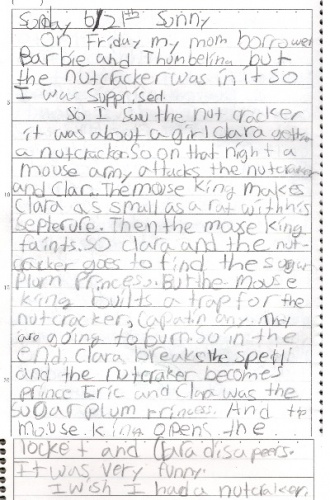 Sunday 6/21th Sunny
On Friday my mom borrower
Barbie and Thumbelina but
the nutcracker was in it so
I was supprised.
So I saw the nut cracker
it was about a girl Clara
a nutcracker. So on that night a
mouse army attacks the nutcracker
and Clara. The mouse king makes
Clara as small as a rat with his
septerure. Then the mouse king
faints. So clara and the nut-
cracker goes to find the sugar
Plum Princess. But the mouse
king builts a trap for the
nutcracker, Capatin any. They
are going to burn. So in the
end, Clara breaks the spell
and the nutcraker becomes
prince Eric and Clara was the
sugar plum princess. And the
mouse king opens the
locket and Clara disapeers.
It was very funny.
I wish I had a nutcraker.